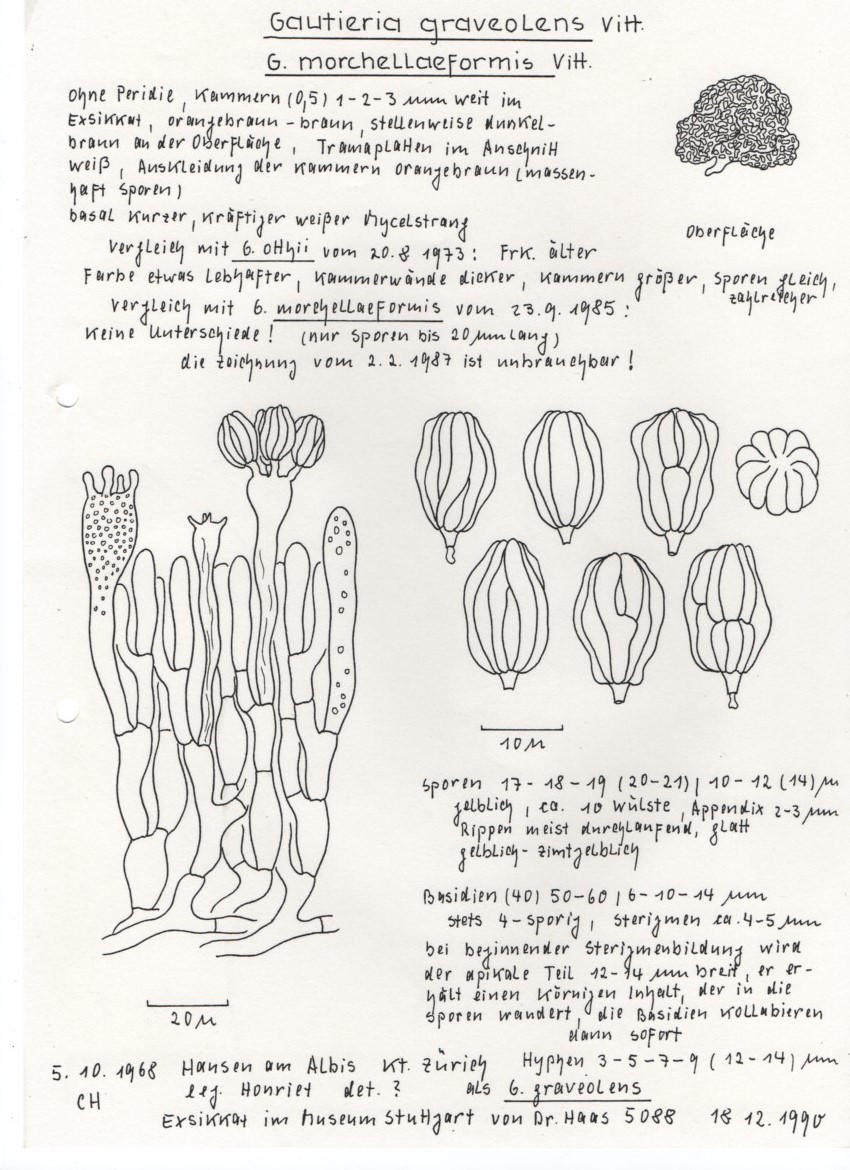 Gautieria graveolens Vitt.
G. morchellaeformis Vitt.
ohne Peridie, Kammern (0,5) 1-2-3 mm weit im
Exsikkat, orangebraun - braun, stellenweise dunkel-
braun an der Oberfläche, Tramaplatten im Anschnitt
weiß, Auskleidung der Kammern orangebraun (massen-
haft Sporen)
basal kurzer, kräftiger weißer Mycelstrang
Oberfläche
Vergleich mit G. otthii vom 20.8 1973: Frk. älter
Farbe etwas lebhafter, Kammerwände dicker, Kammern größer, Sporen gleich,
zahlreicher
Vergleich mit G. morchellaeformis vom 23.9.1985:
Keine Unterschiede! (nur Sporen bis 20 µm lang)
die Zeichnung vom 2.2.1987 ist unbrauchbar!
10 µ
Sporen 17-18-19 (20-21) / 10-12 (14) µm
gelblich, ca. 10 Wülste, Appendix 2-3 µm
Rippen meist durchlaufend, glatt
gelblich-zimtgelblich
Basidien (40) 50-60 / 6-10-14 µm
stets 4-sporig, Sterigmen ca. 4-5 µm
bei beginnender Sterigmenbildung wird
der apikale Teil 12-14 µm breit, er er-
hält einen körnigen Inhalt, der in die
Sporen wandert, die Basidien kollabieren
dann sofort
20 µ
Hyphen 3-5-7-9 (12-14) µm
5. 10. 1968 Hansen am Albis Kt. Zürich
CH leg. Honriet det. ? als G. graveolens
Exsikkat im Museum Stuttgart von Dr. Haas 5088 18 12. 1990